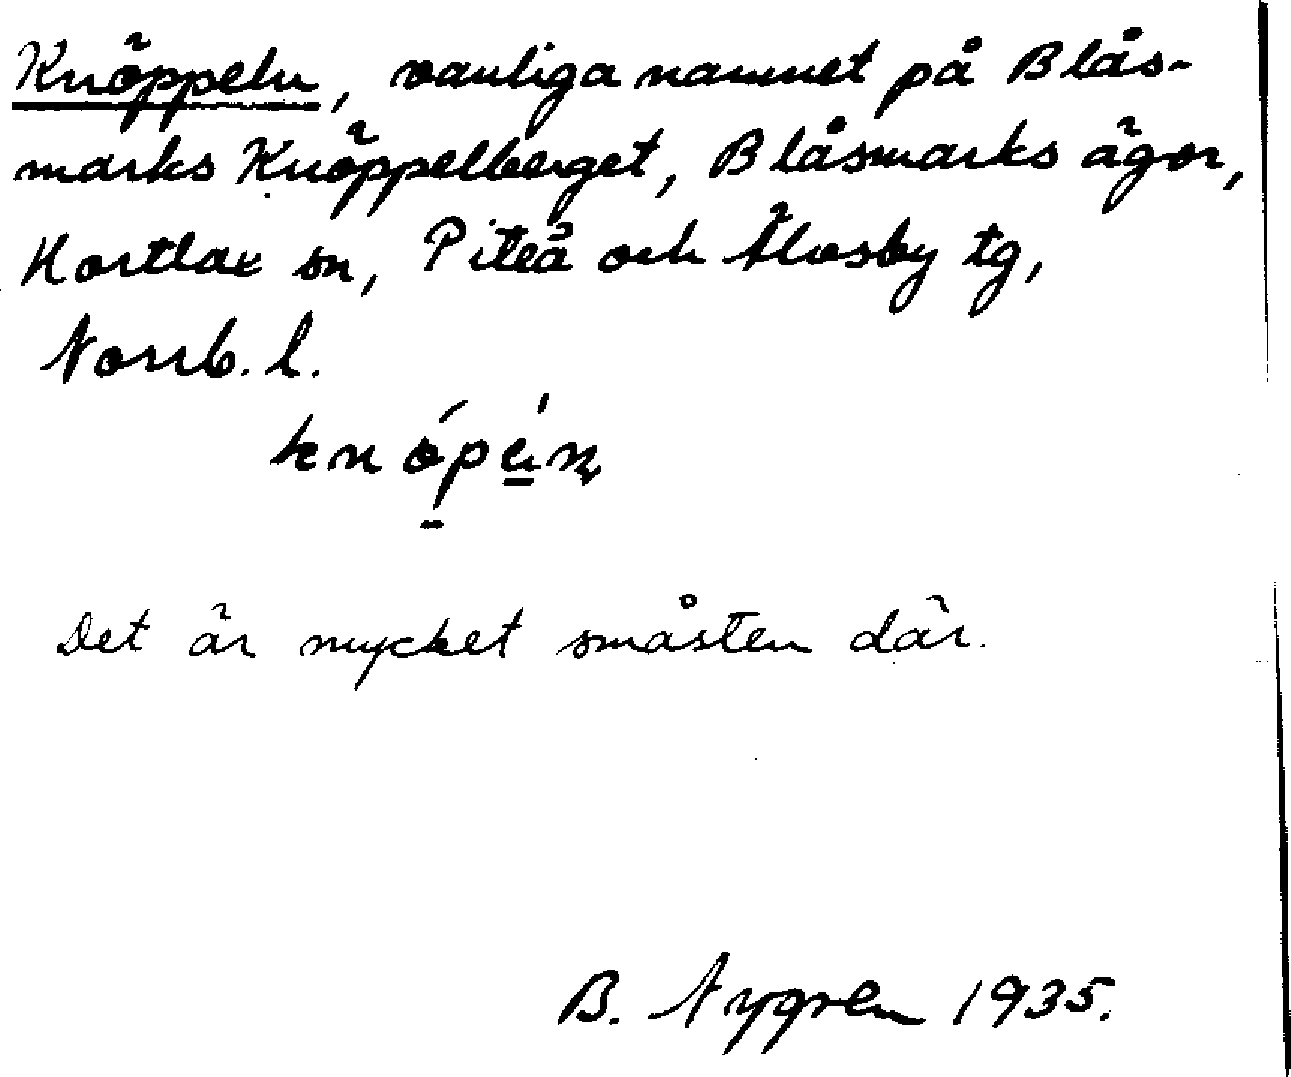 Knöppeln, vanliga namnet på Blås-
marks Knöppelberget, Blåsmarks ägor,
Hortlax sn, Piteå och Älvsby tg,
Norrb. l.
Det är mycket småsten där.
B. Nygren 1935.